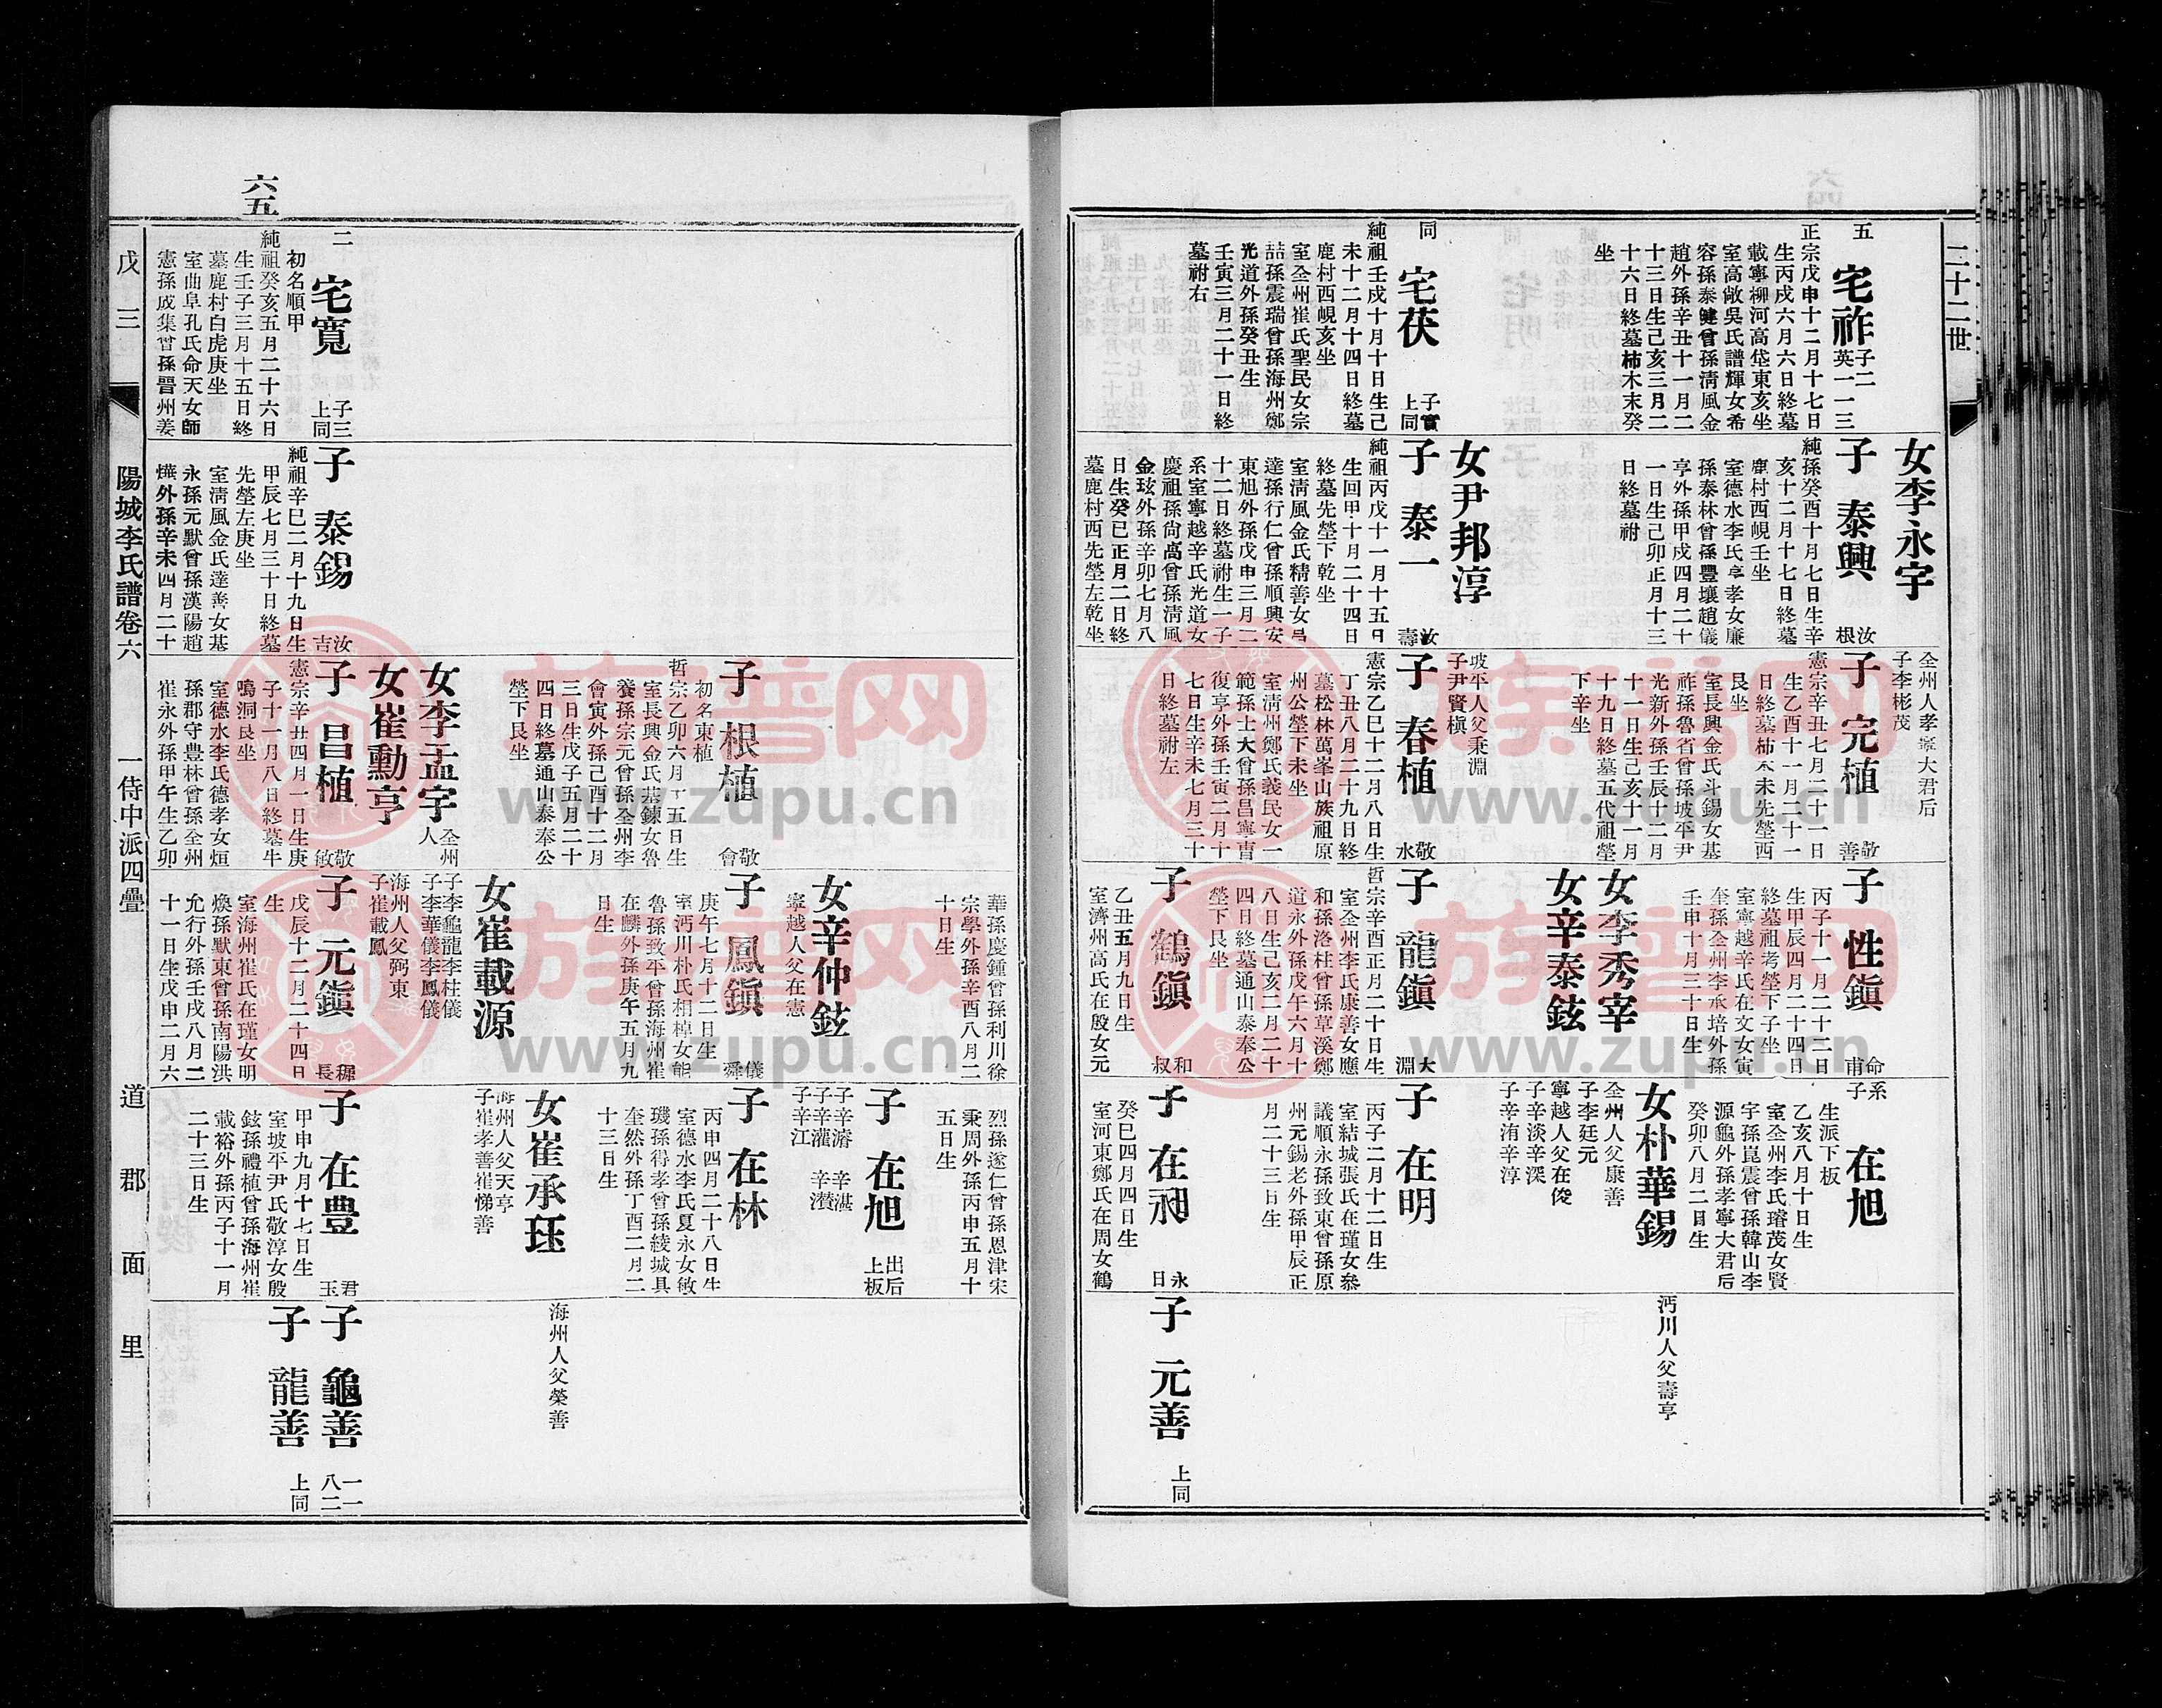 二十二世
五
宅祚
子二
英一一三
正宗戊申十二月十七日
生丙戌六月六日終墓
載寧柳河高垈東亥坐
室高敞吳氏譜輝女希
容孫泰健曾孫淸風金
趙外孫辛丑十一月二
十三日生己亥三月二
十六日終墓柿木末癸
坐
同
宅茯
子實
上同
純祖壬戌十月十日生己
未十二月十四日終墓
鹿村西峴亥坐
室全州崔氏聖民女宗
喆孫震瑞曾孫海州鄭
光道外孫癸丑生
壬寅三月二十一日終
墓祔右
女李永宇
子 泰興
汝根
純孫癸酉十月七日生辛
亥十二月十七日終墓
鹿村西峴壬坐
室德水李氏享孝女廉
孫泰林曾孫豐壤趙儀
亨外孫甲戌四月二十
一日生己卯正月十三
日終墓祔
女尹邦淳
子 泰一
汝壽
純祖丙戌十一月十五日
生回甲十月二十四日
終墓先塋下乾坐
室淸風金氏精善女昌
達孫行仁曾孫順興安
東旭外孫戊申三月二
十二日終墓祔生一子
系室寧越辛氏光道女
慶祖孫尙高曾孫淸風
金玹外孫辛卯七月八
日生癸巳正月二日終
墓鹿村西先塋左乾坐
全州人孝寧大君后
子李彬茂
子 完植
敬善
憲宗辛丑七月二十一日
生乙酉十一月二十一
日終墓柿木末先塋西
艮坐
室長興金氏斗錫女基
祚孫魯省曾孫坡平尹
光新外孫壬辰十二月
十一日生己亥十一月
十九日終墓五代祖塋
下辛坐
坡平人父秉淵
子尹賢楨
子 春植
敬水
憲宗乙巳十二月八日生
丁丑八月二十九日終
墓松林萬峯山族祖原
州公塋下未坐
室淸州鄭氏義民女一
範孫士大曾孫昌寧曺
復亨外孫壬寅二月十
七日生辛未七月三十
日終墓祔左
子 性鎭
命甫
丙子十一月二十二日
生甲辰四月二十四日
終墓祖考塋下子坐
室寧越辛氏在文女寅
奎孫全州李丞培外孫
壬申十月三十日生
女李秀宰
女辛泰鉉
子 龍鎭
大淵
哲宗辛酉正月二十日生
室全州李氏康善女應
和孫洛柱曾孫草溪鄭
道永外孫戊午六月十
八日生己亥二月二十
四日終墓通山泰奉公
塋下艮坐
子 鶴鎭
和叔
乙丑五月九日生
室濟州高氏在殷女元
系子 在旭
生派下板
乙亥八月十日生
室全州李氏璿茂女賢
宇孫崑震曾孫韓山李
源龜外孫孝寧大君后
癸卯八月二日生
女朴華錫
全州人父康善
子李廷元
寧越人父在俊
子辛淡辛溪
子辛洧辛淳
子 在明
丙子二月十二日生
室結城張氏在瑾女參
議順永孫致東曾孫原
州元錫老外孫甲辰正
月二十三日生
子 在昶
永日
癸巳四月四日生
室河東鄭氏在周女鶴
沔川人父壽亨
子 元善
上同
華孫慶鍾曾孫利川徐
宗學外孫辛酉八月二
十日生
烈孫遂仁曾孫恩津宋
秉周外孫丙申五月十
五日生
子 根植
敬會
初名東植
哲宗乙卯六月十五日生
室長興金氏棐鍊女魯
養孫宗元曾孫全州李
會寅外孫己酉十二月
三日生戊子五月二十
四日終墓通山泰奉公
塋下艮坐
女辛仲鉉
寧越人父在憲
子 鳳鎭
儀舜
庚午七月十二日生
室沔川朴氏相棹女能
魯孫致平曾孫海州崔
在麟外孫庚午五月九
日生
女崔載源
子 在旭
出后
上板
子辛濬 辛湛
子辛灌 辛濽
子辛江
子 在林
丙申四月二十八日生
室德水李氏夏永女敏
璣孫得孝曾孫綾城具
奎然外孫丁酉二月二
十三日生
女崔承珏
海州人父天亨
子崔孝善崔悌善
海州人父榮善
二
宅寬
子三
上同
初名順甲
純祖癸亥五月二十六日
生壬子三月十五日終
墓鹿村白虎庚坐
室曲阜孔氏命天女師
憲孫成集曾孫晉州姜
子 泰錫
汝吉
純祖辛巳二月十九日生
甲辰七月三十日終墓
先塋左庚坐
室淸風金氏達善女基
永孫元默曾孫漢陽趙
㷸外孫辛未四月二十
女李孟宇
全州人
女崔勳亨
子 昌植
敬敏
憲宗辛丑四月一日生庚
子十一月八日終墓牛
鳴洞艮坐
室德水李氏德孝女烜
孫郡守豊林曾孫全州
崔永外孫甲午生乙卯
子李龜龍李柱儀
子李華儀李鳳儀
海州人父弼東
子崔載鳳
子 元鎭
穉長
戊辰十二月二十四日
生
室海州崔氏在瑾女明
煥孫默東曾孫南陽洪
允行外孫壬戌八月二
十一日生戊申二月六
子 在豊
君玉
甲申九月十七日生
室坡平尹氏敬淳女殷
鉉孫禮植曾孫海州崔
載裕外孫丙子十一月
二十三日生
子 龜善
一一
八二
子 龍善
上同
六五
戊 三 陽城李氏譜卷六 一侍中派四疊 道 郡 面 里
族谱网
www.zupu.cn
族谱网
www.zupu.cn
族谱网
www.zupu.cn
族谱网
www.zupu.cn